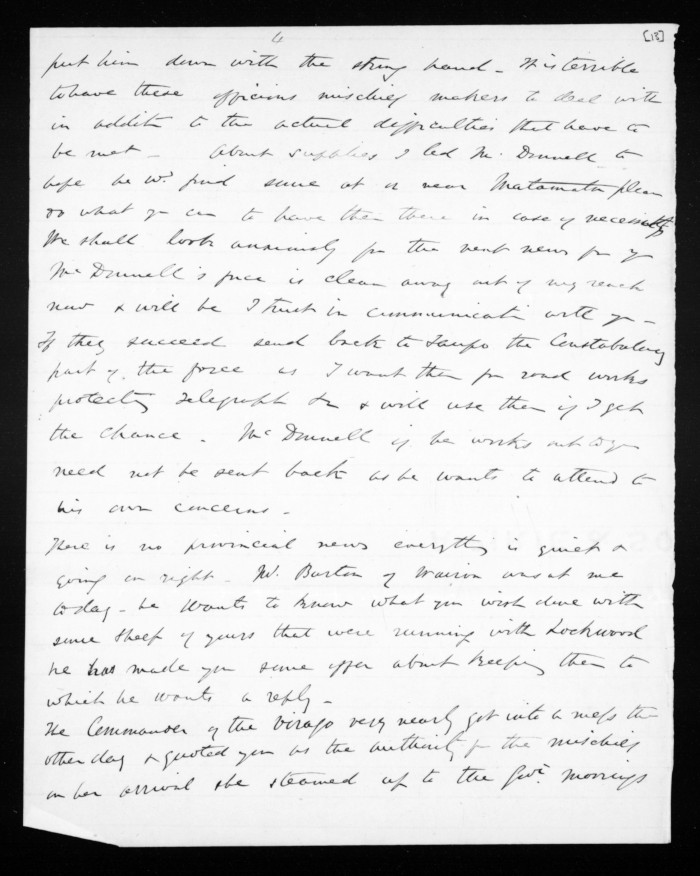 4
[13]
put him down with the strong hand - It is terrible
to have these officious mischief makers to deal with
in addition to the actual difficulties that have to
be met - About supplies I led McDonnell to
hope he wd find some at or near Matamata please
do what you can to have them there in case of necessity
We shall look anxiously for the next news from you
McDonnell's force is clean away out of my reach
now & will be I trust in communication with you -
If they succeed send back to Taupo the Constabulary
part of the force as I want them for road works
protecting Telegraph &c & will use them if I get
the chance - McDonnell if he works out to you
need not be sent back as he wants to attend to
his own concerns -
There is no provincial news everything is quiet &
going on right - Mr. Burton of Wairoa was at me
today - he wants to know what you wish done with
some sheep of yours that were running with Lockwood
he has made you some offer about keeping them to
which he wants a reply -
The Commander of the Virago very nearly got into a mess the
other day & quoted you as the authority for the mischief
on her arrival she steamed up to the Govt. moorings